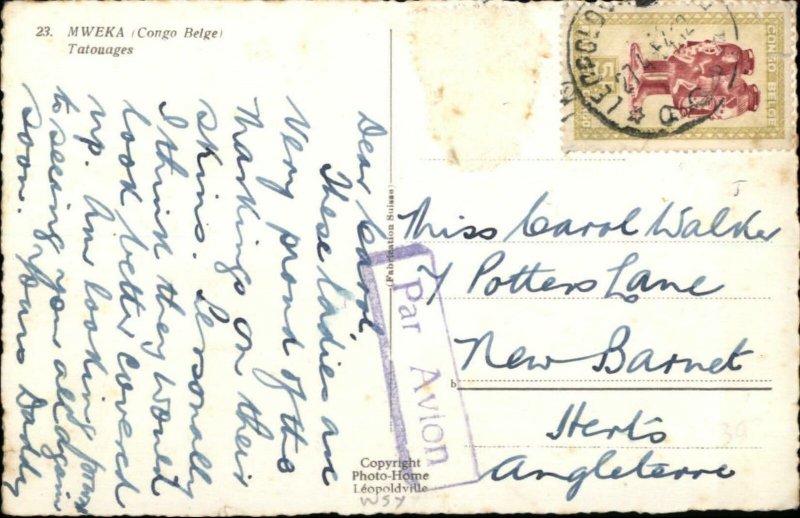 23. MWEKA (Congo Belge)
Tatouages
Dear Carol
These ladies are
very proud of the
markings on their
skins. Personally
I think they would
look better covered
up. Am looking forward
to seeing you all again
soon. Yours Daddy
(Fabrication Suisse)
Copyright
Photo-Home
Léopoldville
WSY
Par Avion
CONGO BELGE
5
Miss Carol Walker
7 Potters Lane
New Barnet
Herts
Angleterre
39